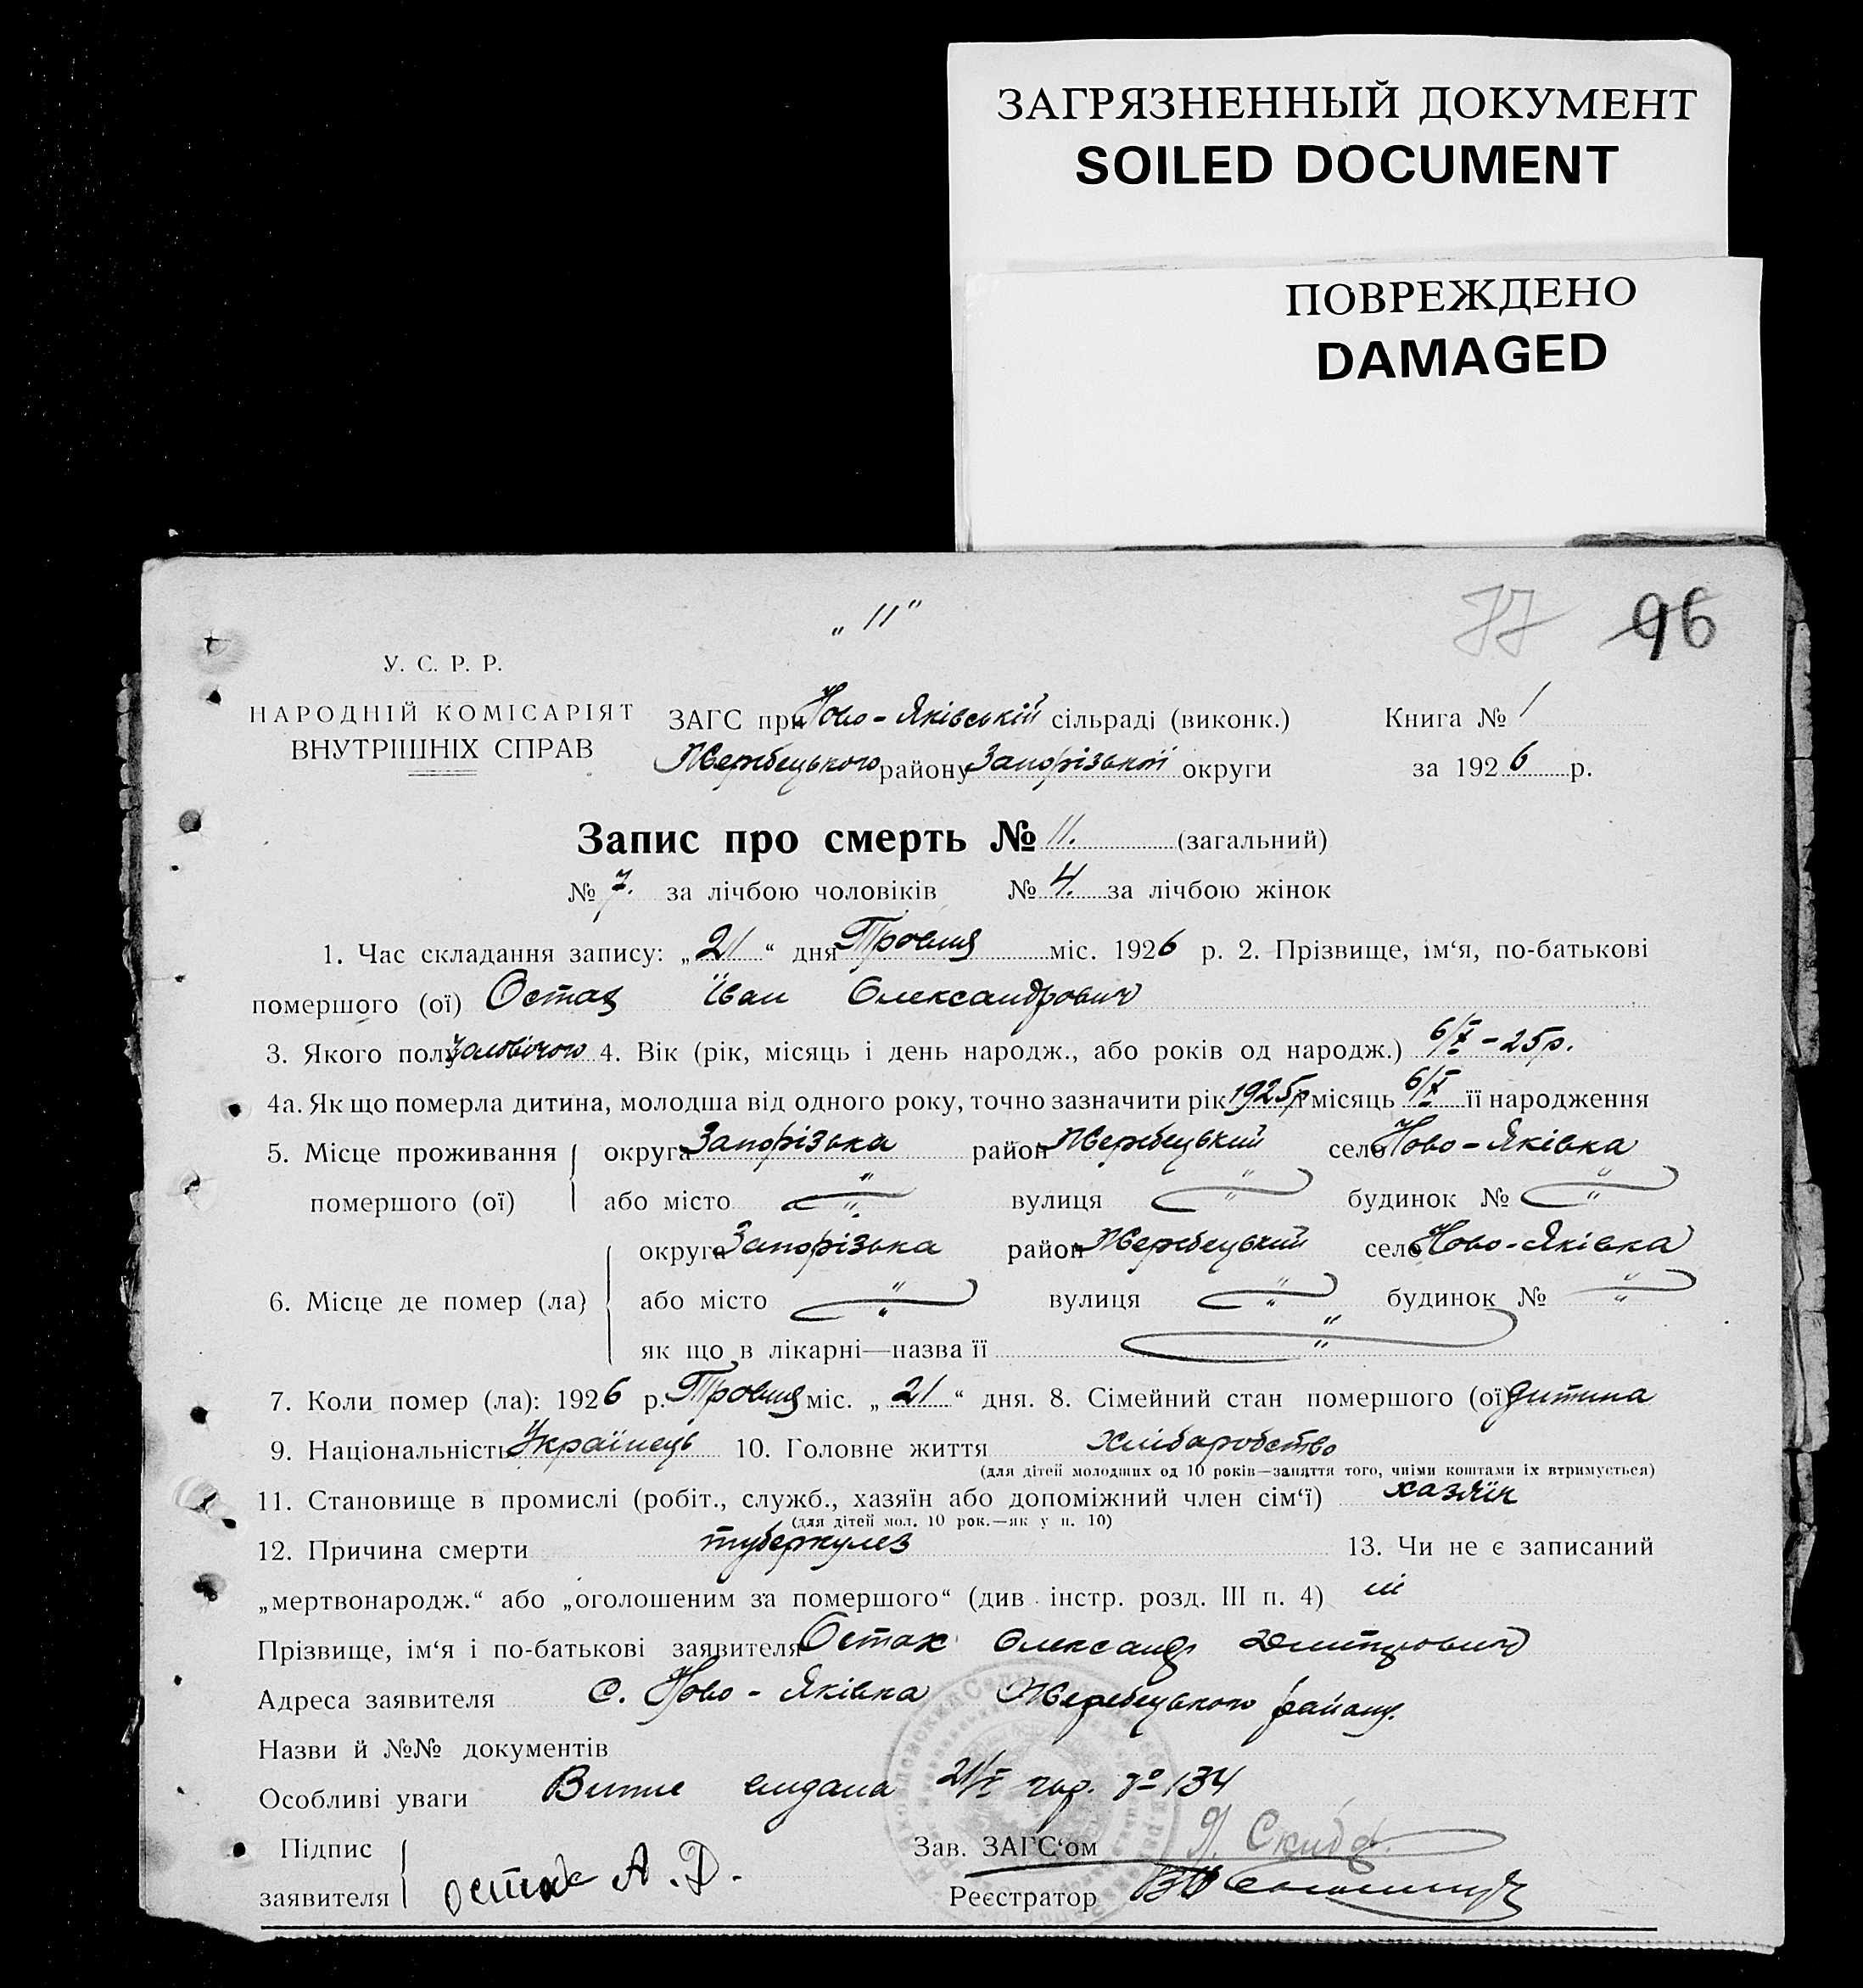 ЗАГРЯЗНЕННЫЙ ДОКУМЕНТ
SOILED DOCUMENT
ПОВРЕЖДЕНО
DAMAGED
„ 11 "
96
У. С. Р. Р.
НАРОДНІЙ КОМІСАРІЯТ
ВНУТРІШНІХ СПРАВ
ЗАГС при Ново-Яківській сільраді (виконк.) Книга № 1
Жеребецького району Запорізької округи за 1926 р.
Запис про смерть № 11. (загальний)
№ 7. за лічбою чоловіків № 4. за лічбою жінок
1. Час складання запису: „21“ дня Травця міс. 1926 р. 2. Прізвище, ім'я, по-батькові
помершого (ої) Остах Іван Олександрович
3. Якого полу чоловічого 4. Вік (рік, місяць і день народж., або років од народж.) 6/X - 25р.
4а. Як що померла дитина, молодша від одного року, точно зазначити рік 1925р місяць 6/X її народження
5. Місце проживання округа Запорізька район Жеребецький село Ново-Яківка
помершого (ої) або місто " вулиця " будинок № "
округа Запорізька район Жеребецький село Ново-Яківка
6. Місце де помер (ла) або місто " вулиця " будинок № "
як що в лікарні—назва її "
7. Коли помер (ла): 1926 р. Травця міс. „21“ дня. 8. Сімейний стан помершого (ої) дитина
9. Національність Українець 10. Головне життя хліборобство
(для дітей молодших од 10 років—заняття того, чиїми коштами їх втримується)
11. Становище в промислі (робіт., служб., хазяїн або допоміжний член сім‘ї) хазяїн
(для дітей мол. 10 рок.—як у п. 10)
12. Причина смерти туберкулез 13. Чи не є записаний
„мертвонародж.“ або „оголошеним за помершого“ (див. інстр. розд. III п. 4) ні
Прізвище, ім‘я і по-батькові заявителя Остах Олександр Дмитрович
Адреса заявителя с. Ново-Яківка Жеребецького району.
Назви й №№ документів
Особливі уваги видана 21/V № 134
Підпис
заявителя Остах А. Д.
Зав. ЗАГС‘ом Скиба
Реєстратор